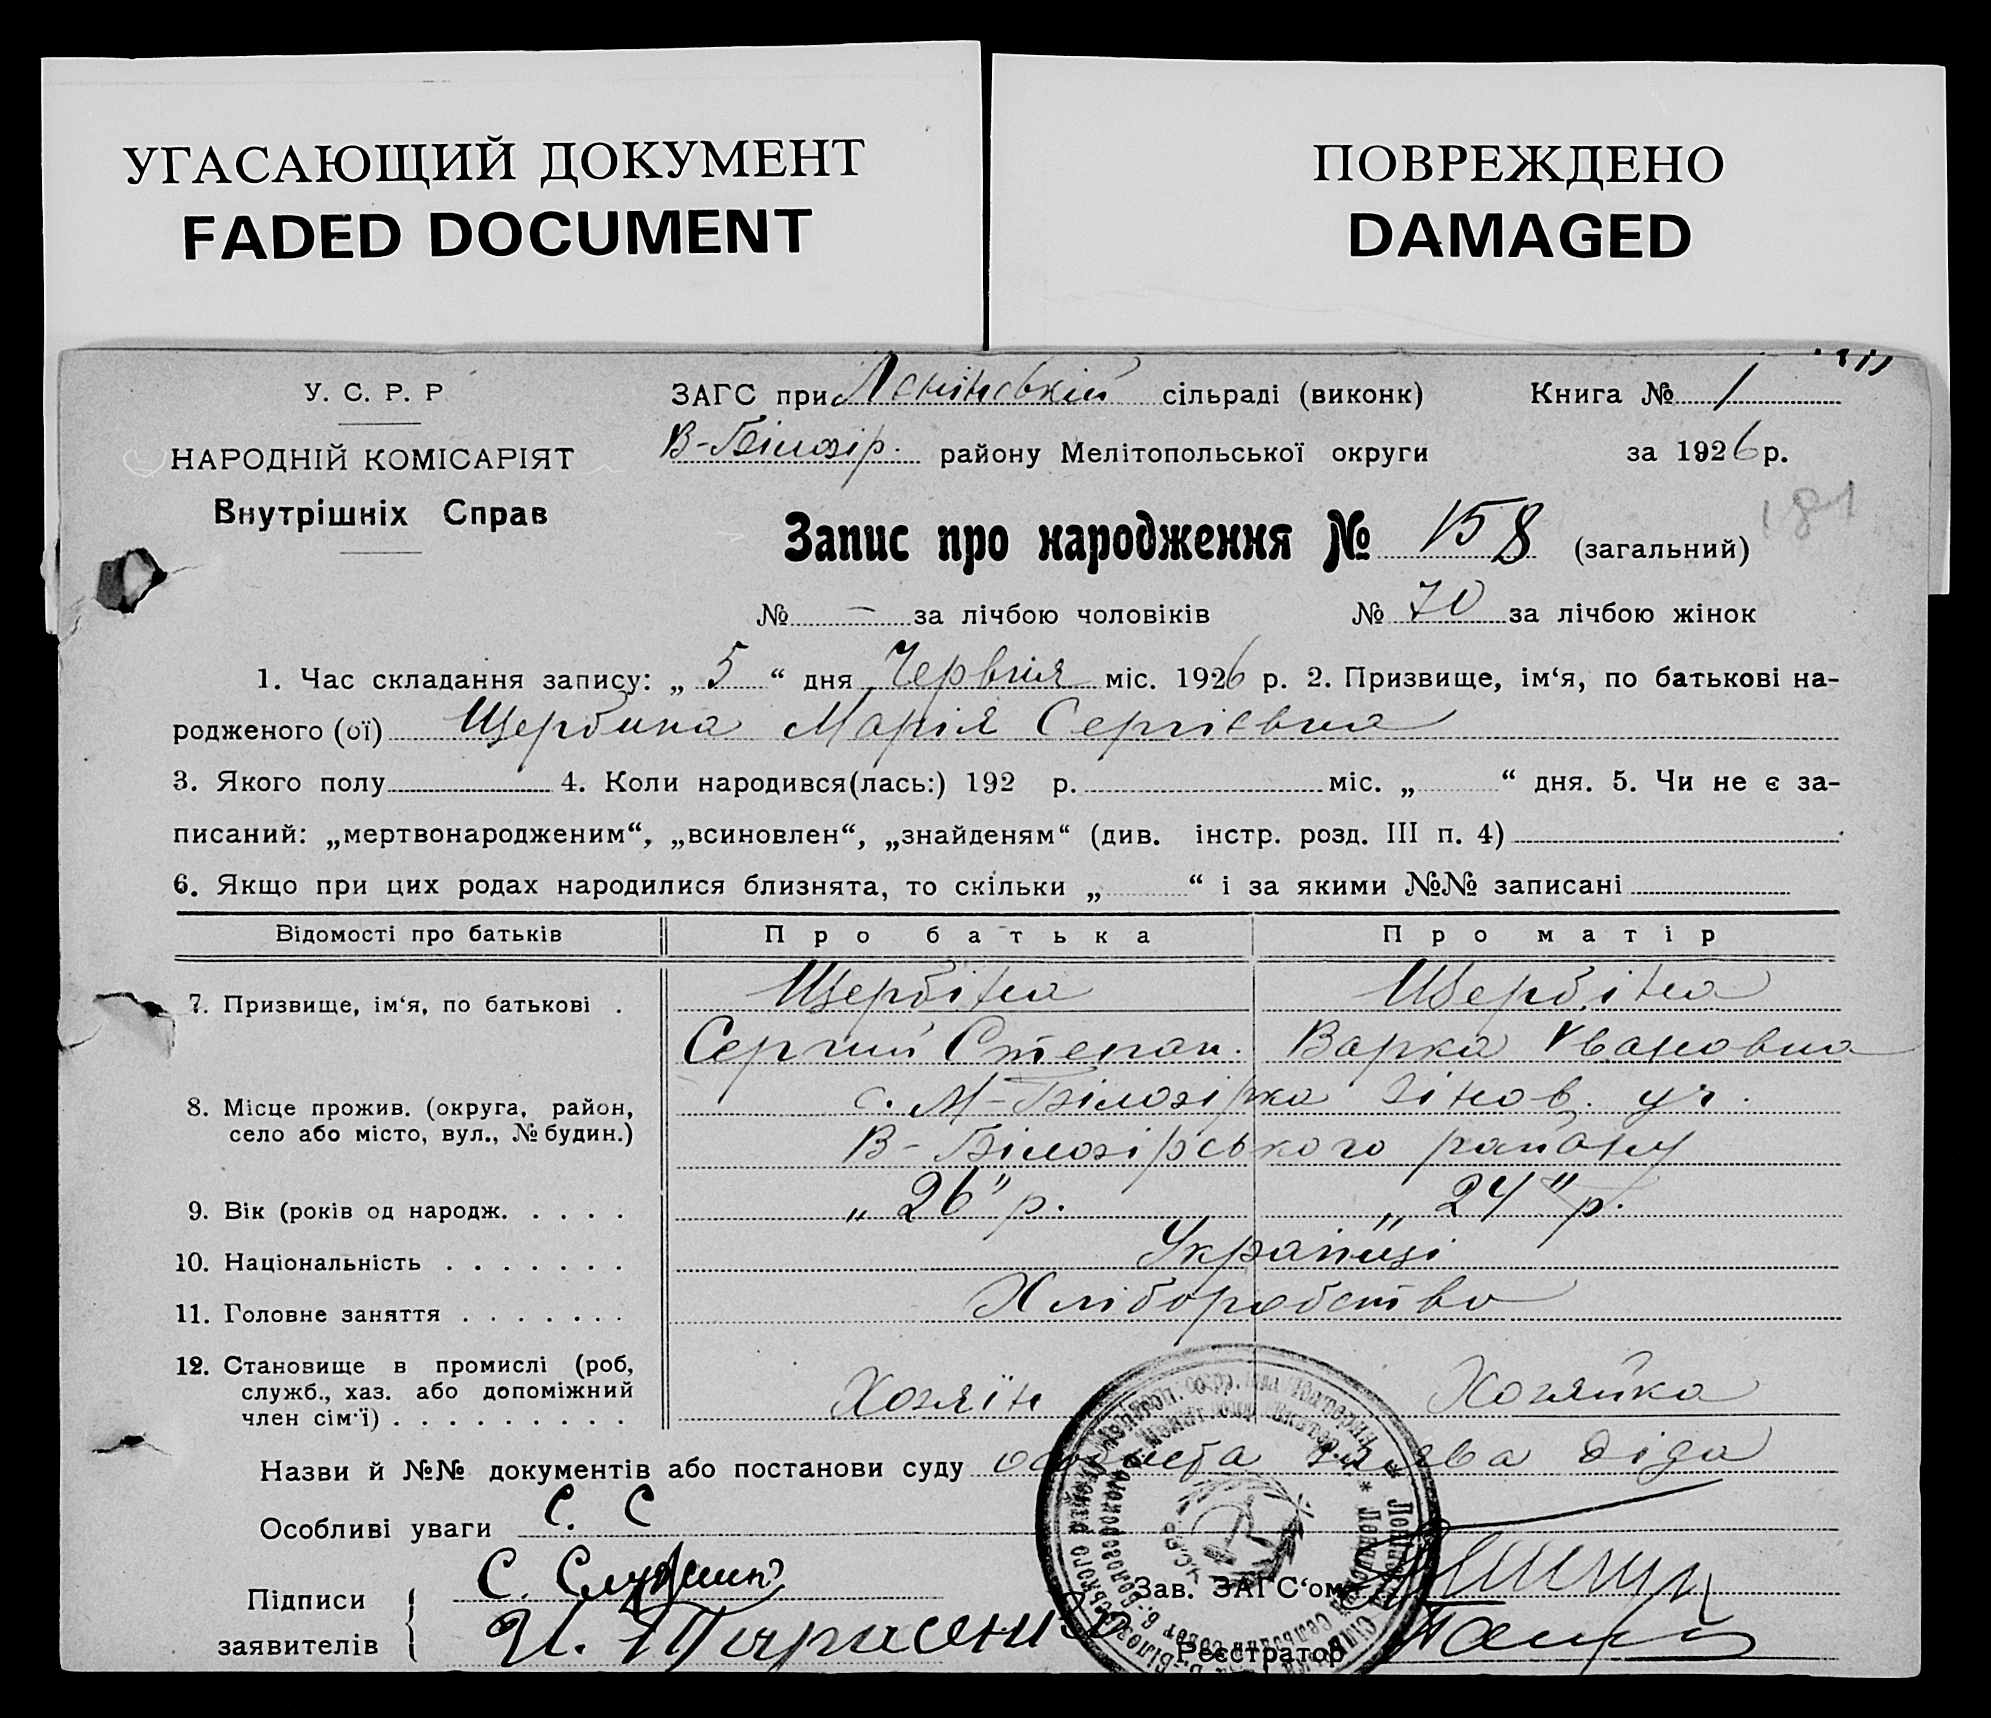 УГАСАЮЩИЙ ДОКУМЕНТ
FADED DOCUMENT
ПОВРЕЖДЕНО
DAMAGED
У. С. Р. Р
НАРОДНІЙ КОМІСАРІЯТ
Внутрішніх Справ
ЗАГС при Ленінській сільраді (виконк) Книга № 1
В-Білозір. району Мелітопольської округи за 1926 р.
181
Запис про народження № 158 (загальний)
№ — за лічбою чоловіків № 70 за лічбою жінок
1. Час складання запису: „ 5 “ дня Червня міс. 1926 р. 2. Призвище, ім‘я, по батькові на-
родженого (ої) Щербина Марія Сергієвна
3. Якого полу 4. Коли народився(лась:) 192 р. міс. „ “ дня. 5. Чи не є за-
писаний: „мертвонародженим“, „всиновлен“, „знайденям“ (див. інстр. розд. III п. 4)
6. Якщо при цих родах народилися близнята, то скільки „ “ і за якими №№ записані
Відомості про батьків Про батька Про матір
7. Призвище, ім‘я, по батькові . Щербіна Щербіна
Сергий Степан. Варка Ивановна
8. Місце прожив. (округа, район, с. М-Білозірка Зінов. уч.
село або місто, вул., № будин.) В-Білозірського району
9. Вік (років од народж. . . . . „ 26 " р. „ 24 " р.
10. Національність . . . . . . . Українці
11. Головне заняття . . . . . . . Хліборобство
12. Становище в промислі (роб,
служб., хаз. або допоміжний Хозяїн Хозяйка
член сім‘ї) . . . . . . . . .
Назви й №№ документів або постанови суду діда
Особливі уваги С. С
Підписи С.
заявителів И. Тарасенко
Зав. ЗАГС‘ом
Реєстратор